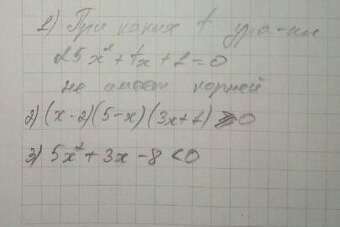 1) При каких t ур-ние
25x² + tx + 1 = 0
не имеет корней
2) (x - 2)(5 - x)(3x + 1) ≥ 0
3) 5x² + 3x - 8 < 0